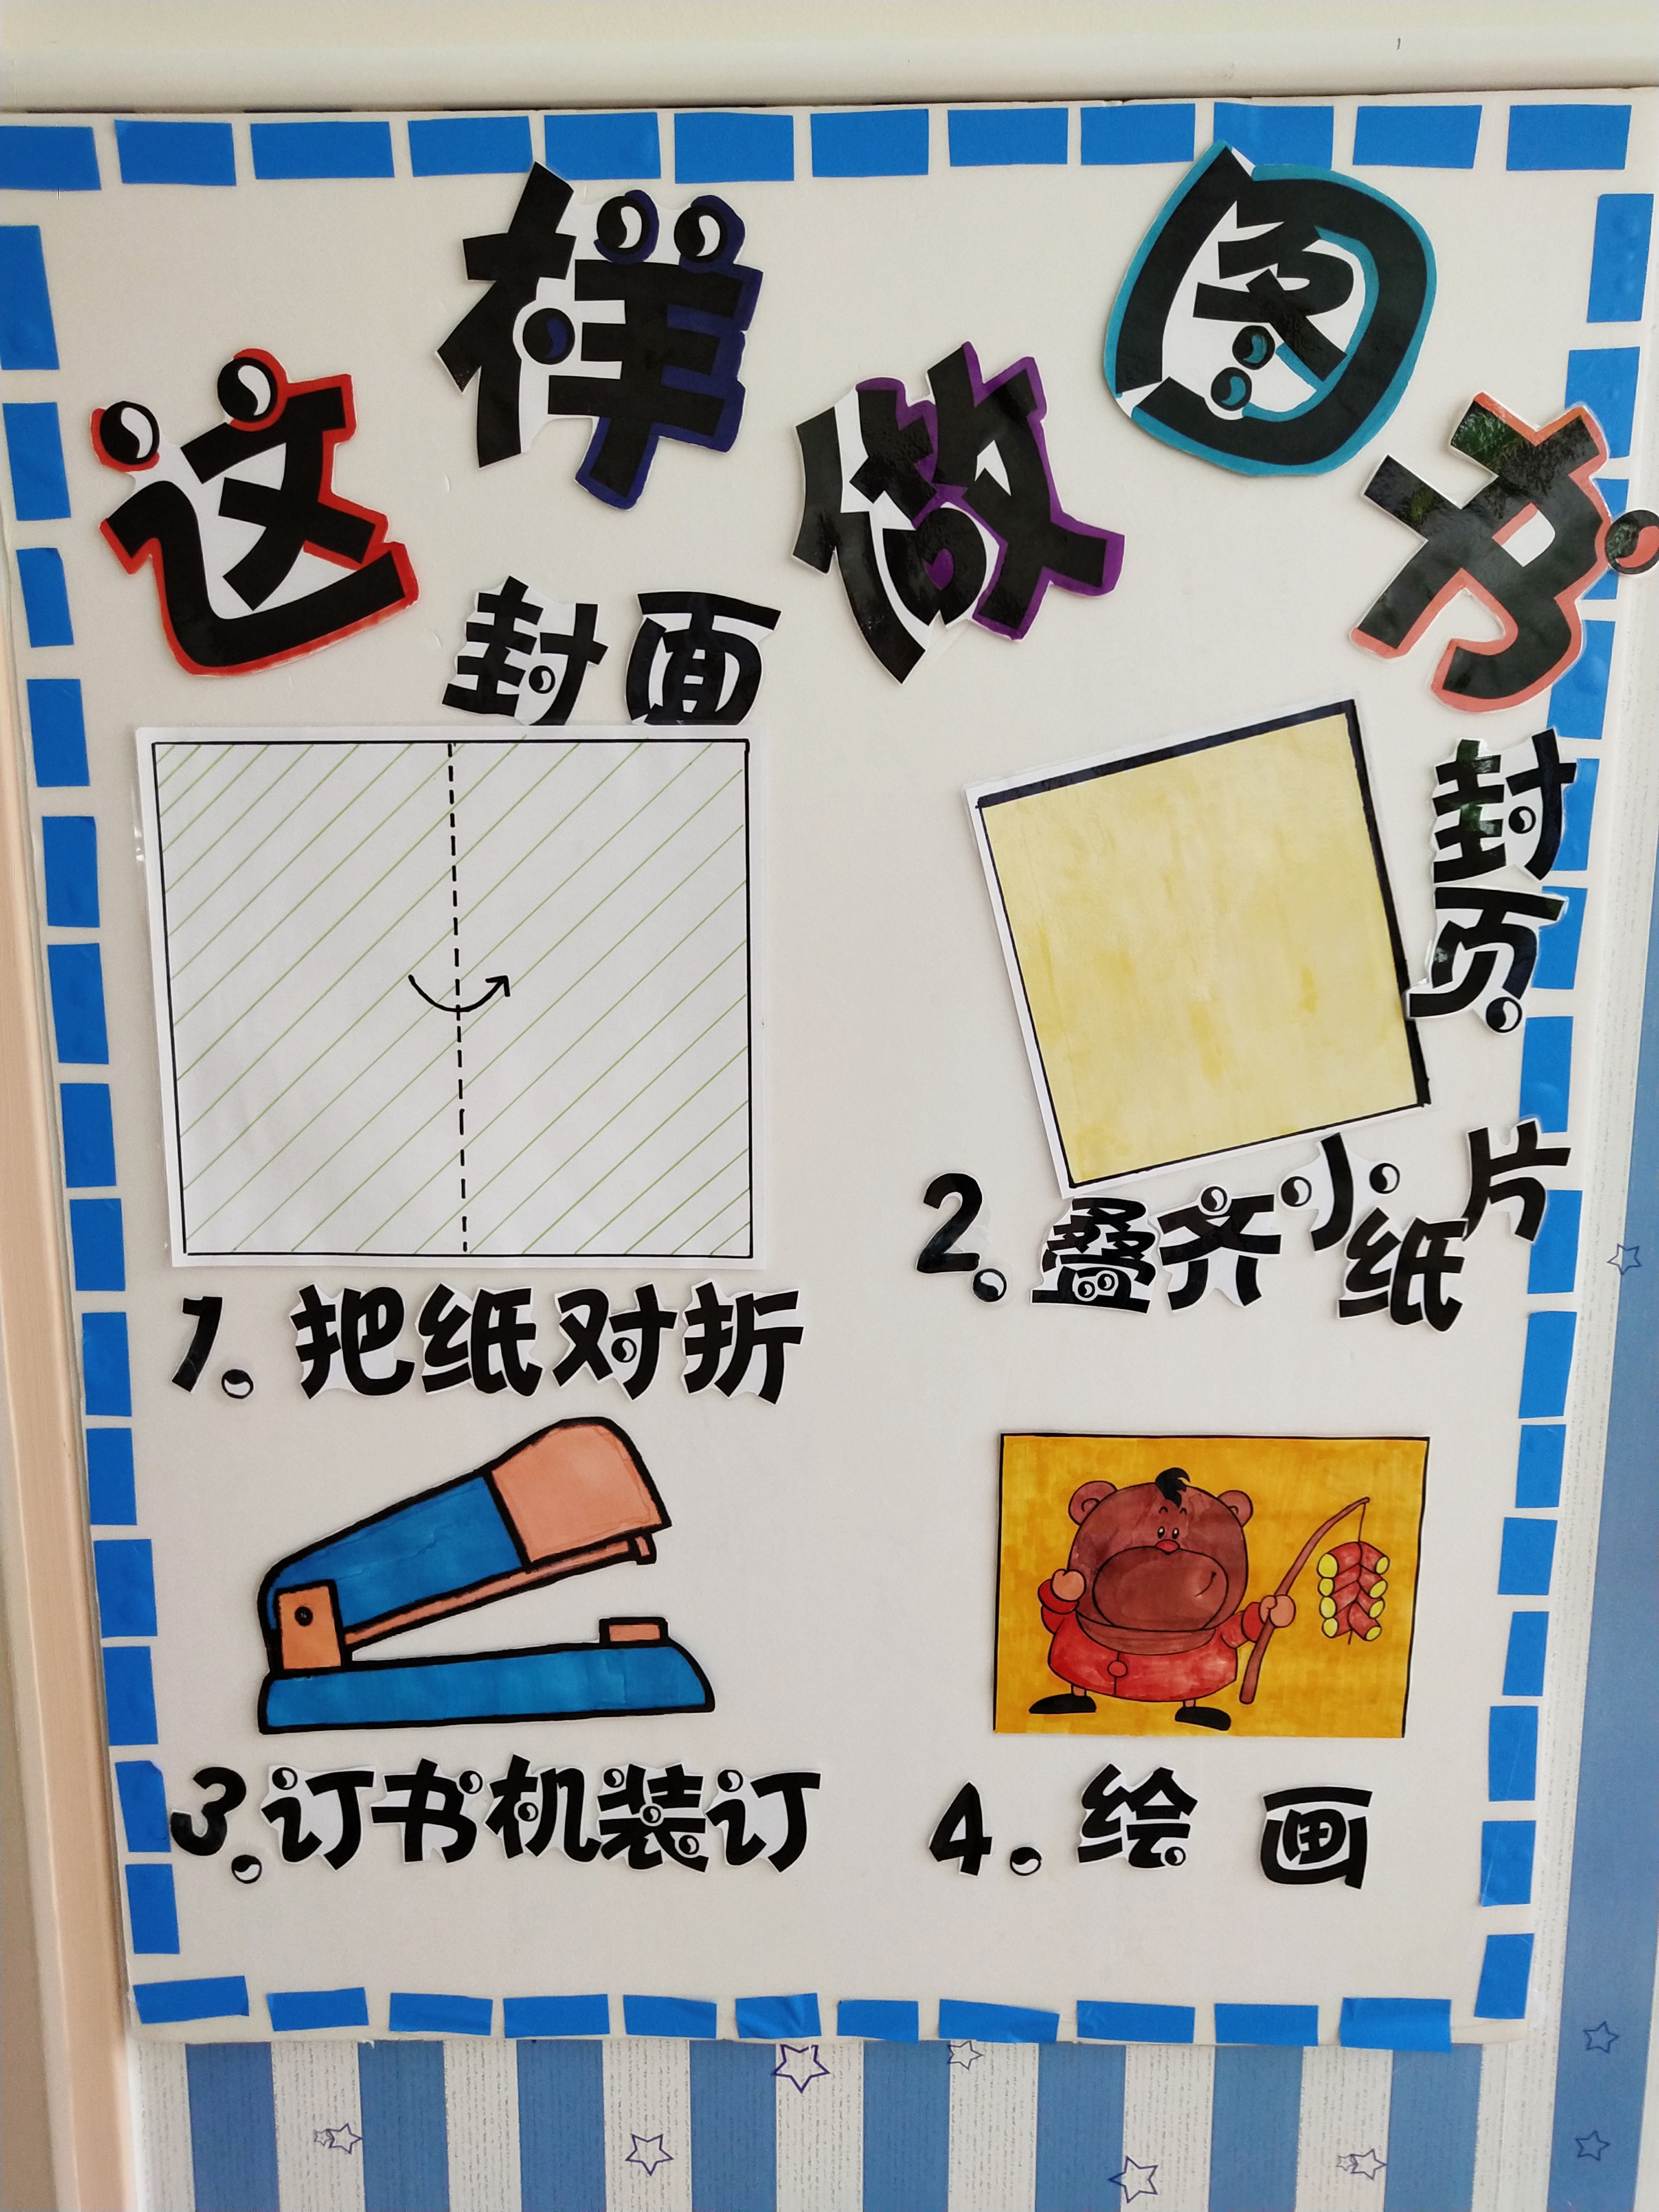 这样做图书
封面
封页
1.把纸对折
2.叠齐小纸片
3.订书机装订
4.绘画